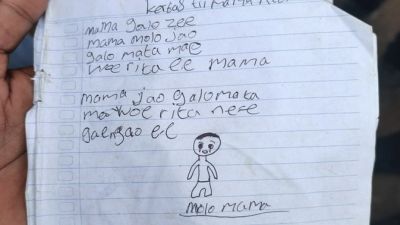 kertas tii mama
mama galo zee
mama molo Jao
galo mata mae
woe rita ee mama
mama jao galo mata
mae woe rita nese
gaengao ee
molo mama